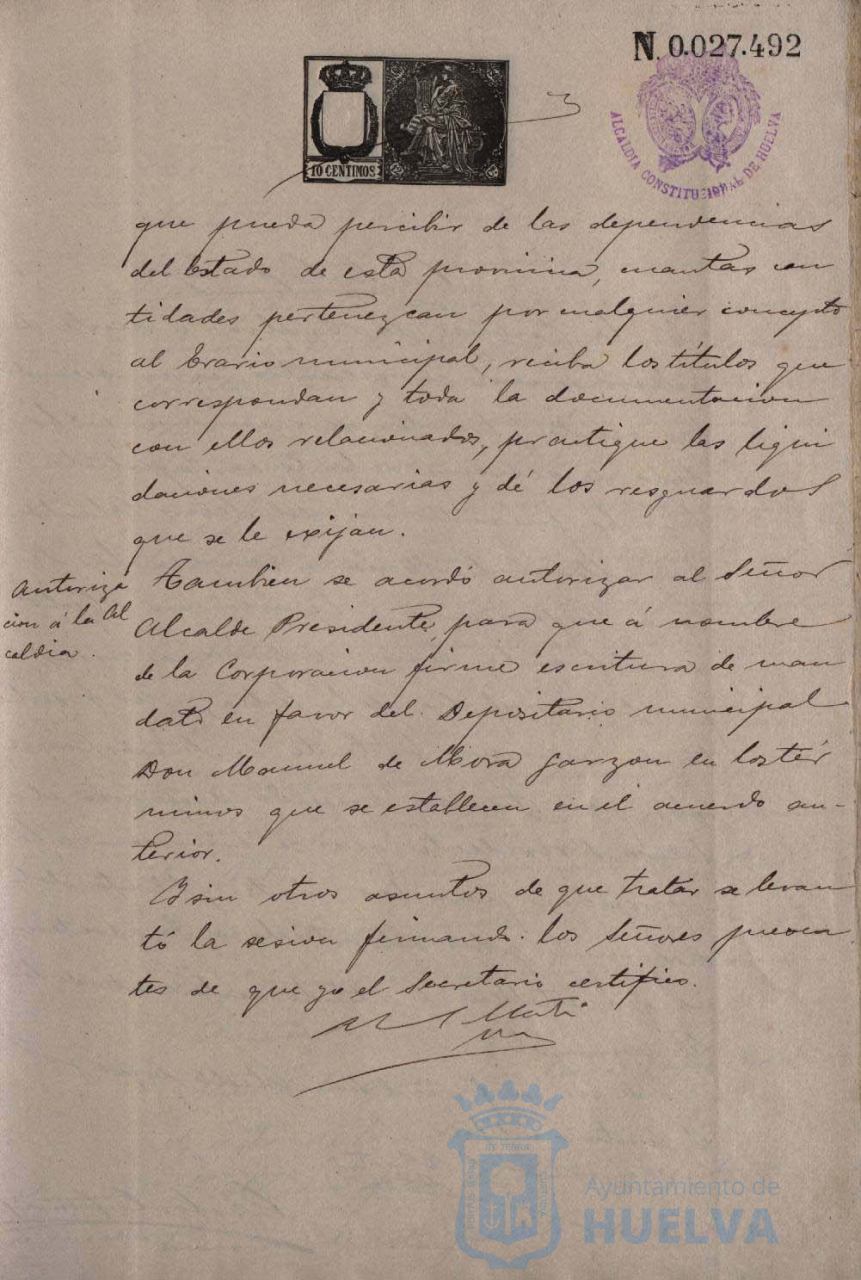 N. 0.027.492
10 CENTIMOS
ALCALDIA CONSTITUCIONAL DE HUELVA
3
que pueda percibir de las dependencias
del Estado de esta provincia, cuantas can
tidades pertenezcan por cualquier concepto
al Erario municipal, reciba los títulos que
correspondan y toda la documentacion
con ellos relacionados, practique las liqui
daciones necesarias y dé los resguardos
que se le exijan.
Autoriza
cion á la Al
caldia.
Tambien se acordó autorizar al Señor
Alcalde Presidente, para que á nombre
de la Corporacion firme escritura de man
dato en favor del Depositario municipal
Don Manuel de Mora Garzon en los tér
minos que se establecen en el acuerdo an-
terior.
Y sin otros asuntos de que tratar se levan
tó la sesion firmando los Señores presen
tes de que yo el Secretario certifico.
Ayuntamiento de
HUELVA